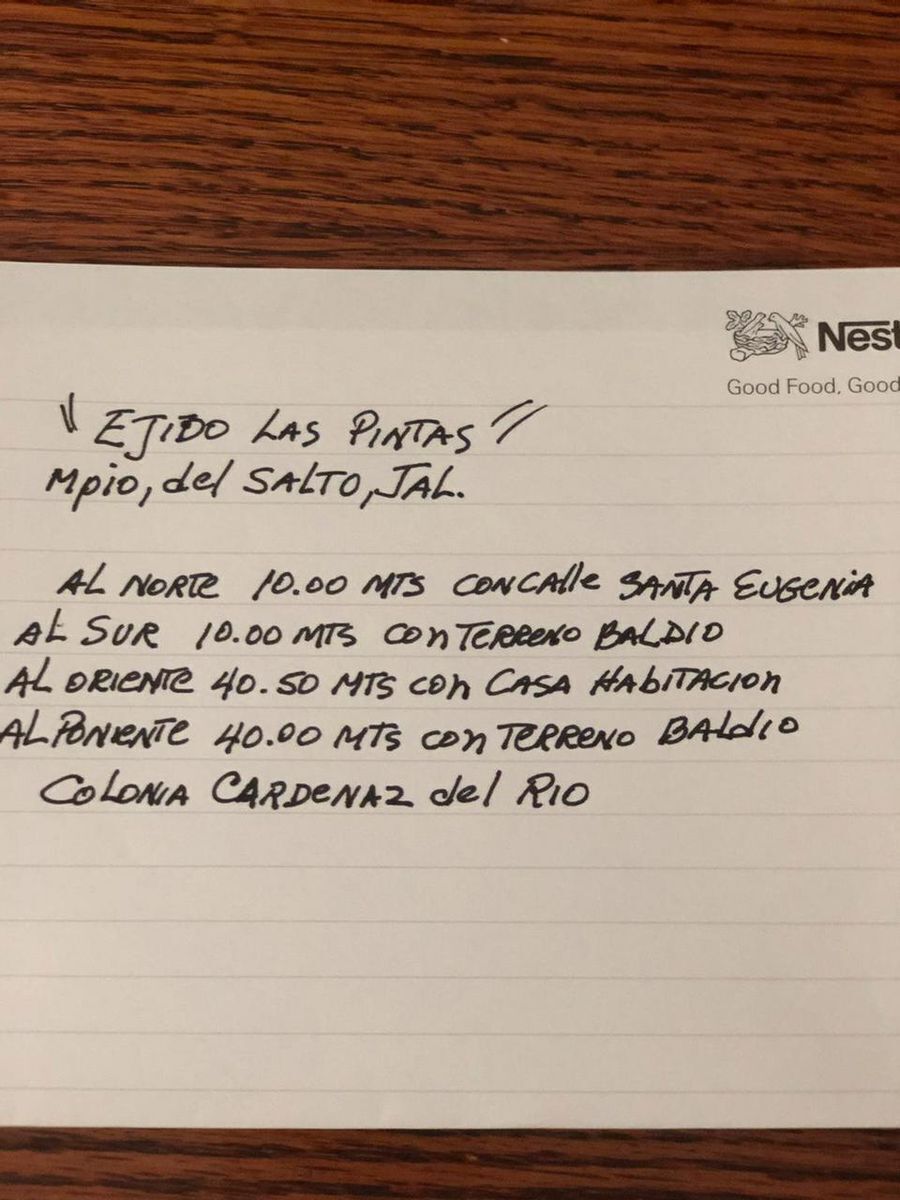 Nest
Good Food, Good
"EJIDO LAS PINTAS"
Mpio, del SALTO, JAL.
AL NORTE 10.00 MTS CON CAlle SANTA EUGENIA
AL SUR 10.00 MTS Con TERRENO BALDIO
AL ORIENTE 40.50 MTS con CASA HAbITACIOn
AL PONIENTE 40.00 MTS con TERRENO BALdIO
COLONIA CARDENAZ del RIO